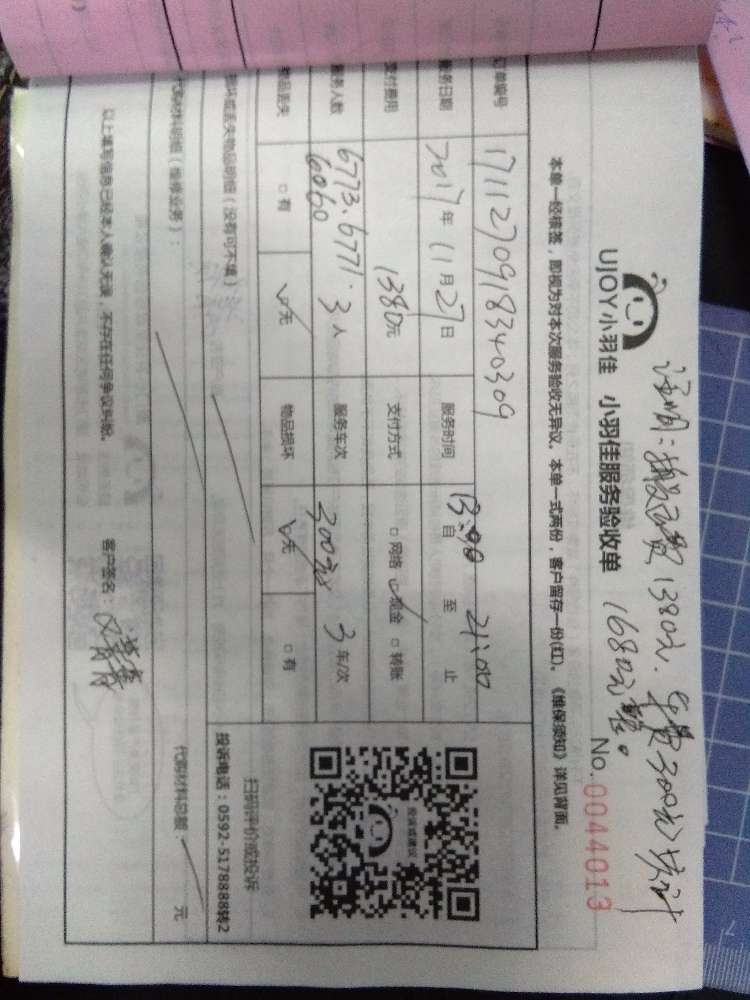 说明：搬运费1380元.车费300元)共计
1680元整。
UJOY小羽佳 小羽佳服务验收单
No.0044013
本单一经核签，即视为对本次服务验收无异议。本单一式两份，客户留存一份(红)。《维保须知》详见背面。
订单编号 1711270918340309
服务日期 2017年11月27日 服务时间 自 13:00 至 21:00 止
支付费用 1380元 支付方式 □网络 ☑现金 □转账
服务人数 6773.6771. 3人 服务车次 300元 3车/次
6060
物品丢失 □有 ☑无 物品损坏 ☑无 □有
损坏或丢失物品明细（没有可不填）
代购材料明细（维修业务）：
代购材料总额： 元
以上填写信息已经本人确认无误，不存在任何争议纠纷。 客户签名：
投诉或建议
扫码评价或投诉
投诉电话：0592-5178888转2